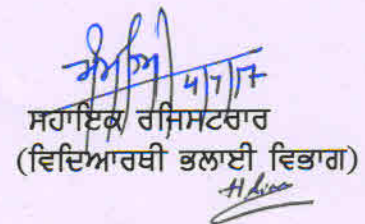 4/7/17
ਸਹਾਇਕ ਰਜਿਸਟਰਾਰ
(ਵਿਦਿਆਰਥੀ ਭਲਾਈ ਵਿਭਾਗ)